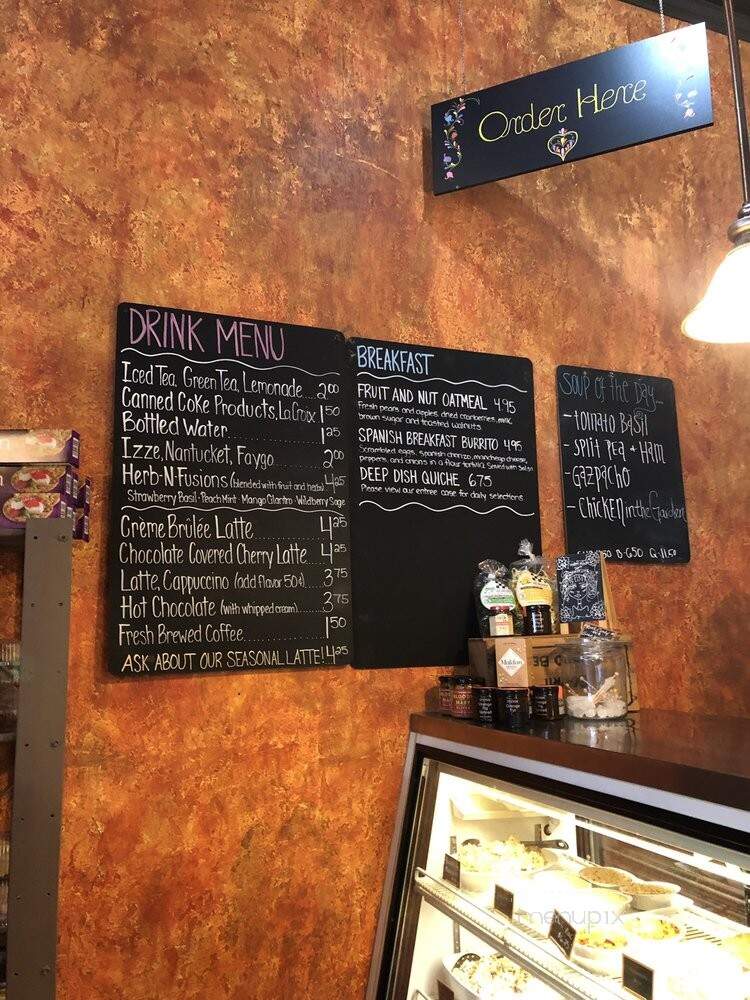 Order Here
DRINK MENU
Iced Tea, Green Tea, Lemonade.... 2.00
Canned Coke Products, La Croix 1.50
Bottled Water.......... 1.25
Izze, Nantucket, Faygo...... 2.00
Herb-N-Fusions (blended with fruit and herbs) 4.25
Strawberry Basil · Peach Mint · Mango Cilantro · Wildberry Sage
Crème Brûlée Latte........ 4.25
Chocolate Covered Cherry Latte.. 4.25
Latte, Cappuccino (add flavor 50¢).... 3.75
Hot Chocolate (with whipped cream)...... 3.75
Fresh Brewed Coffee............ 1.50
ASK ABOUT OUR SEASONAL LATTE! 4.25
BREAKFAST
FRUIT AND NUT OATMEAL 4.95
Fresh pears and apples, dried cranberries, milk,
brown sugar and toasted walnuts
SPANISH BREAKFAST BURRITO 4.95
Scrambled eggs, spanish chorizo, manchego cheese,
peppers, and onions in a flour tortilla. Served with salsa
DEEP DISH QUICHE 6.75
Please view our entree case for daily selections
Soup of the Day...
- Tomato Basil
- Split Pea & Ham
- Gazpacho
- Chicken in the Garden
B-6.50 Q-11.50
Maldon
BLOODY
MARY
menupix